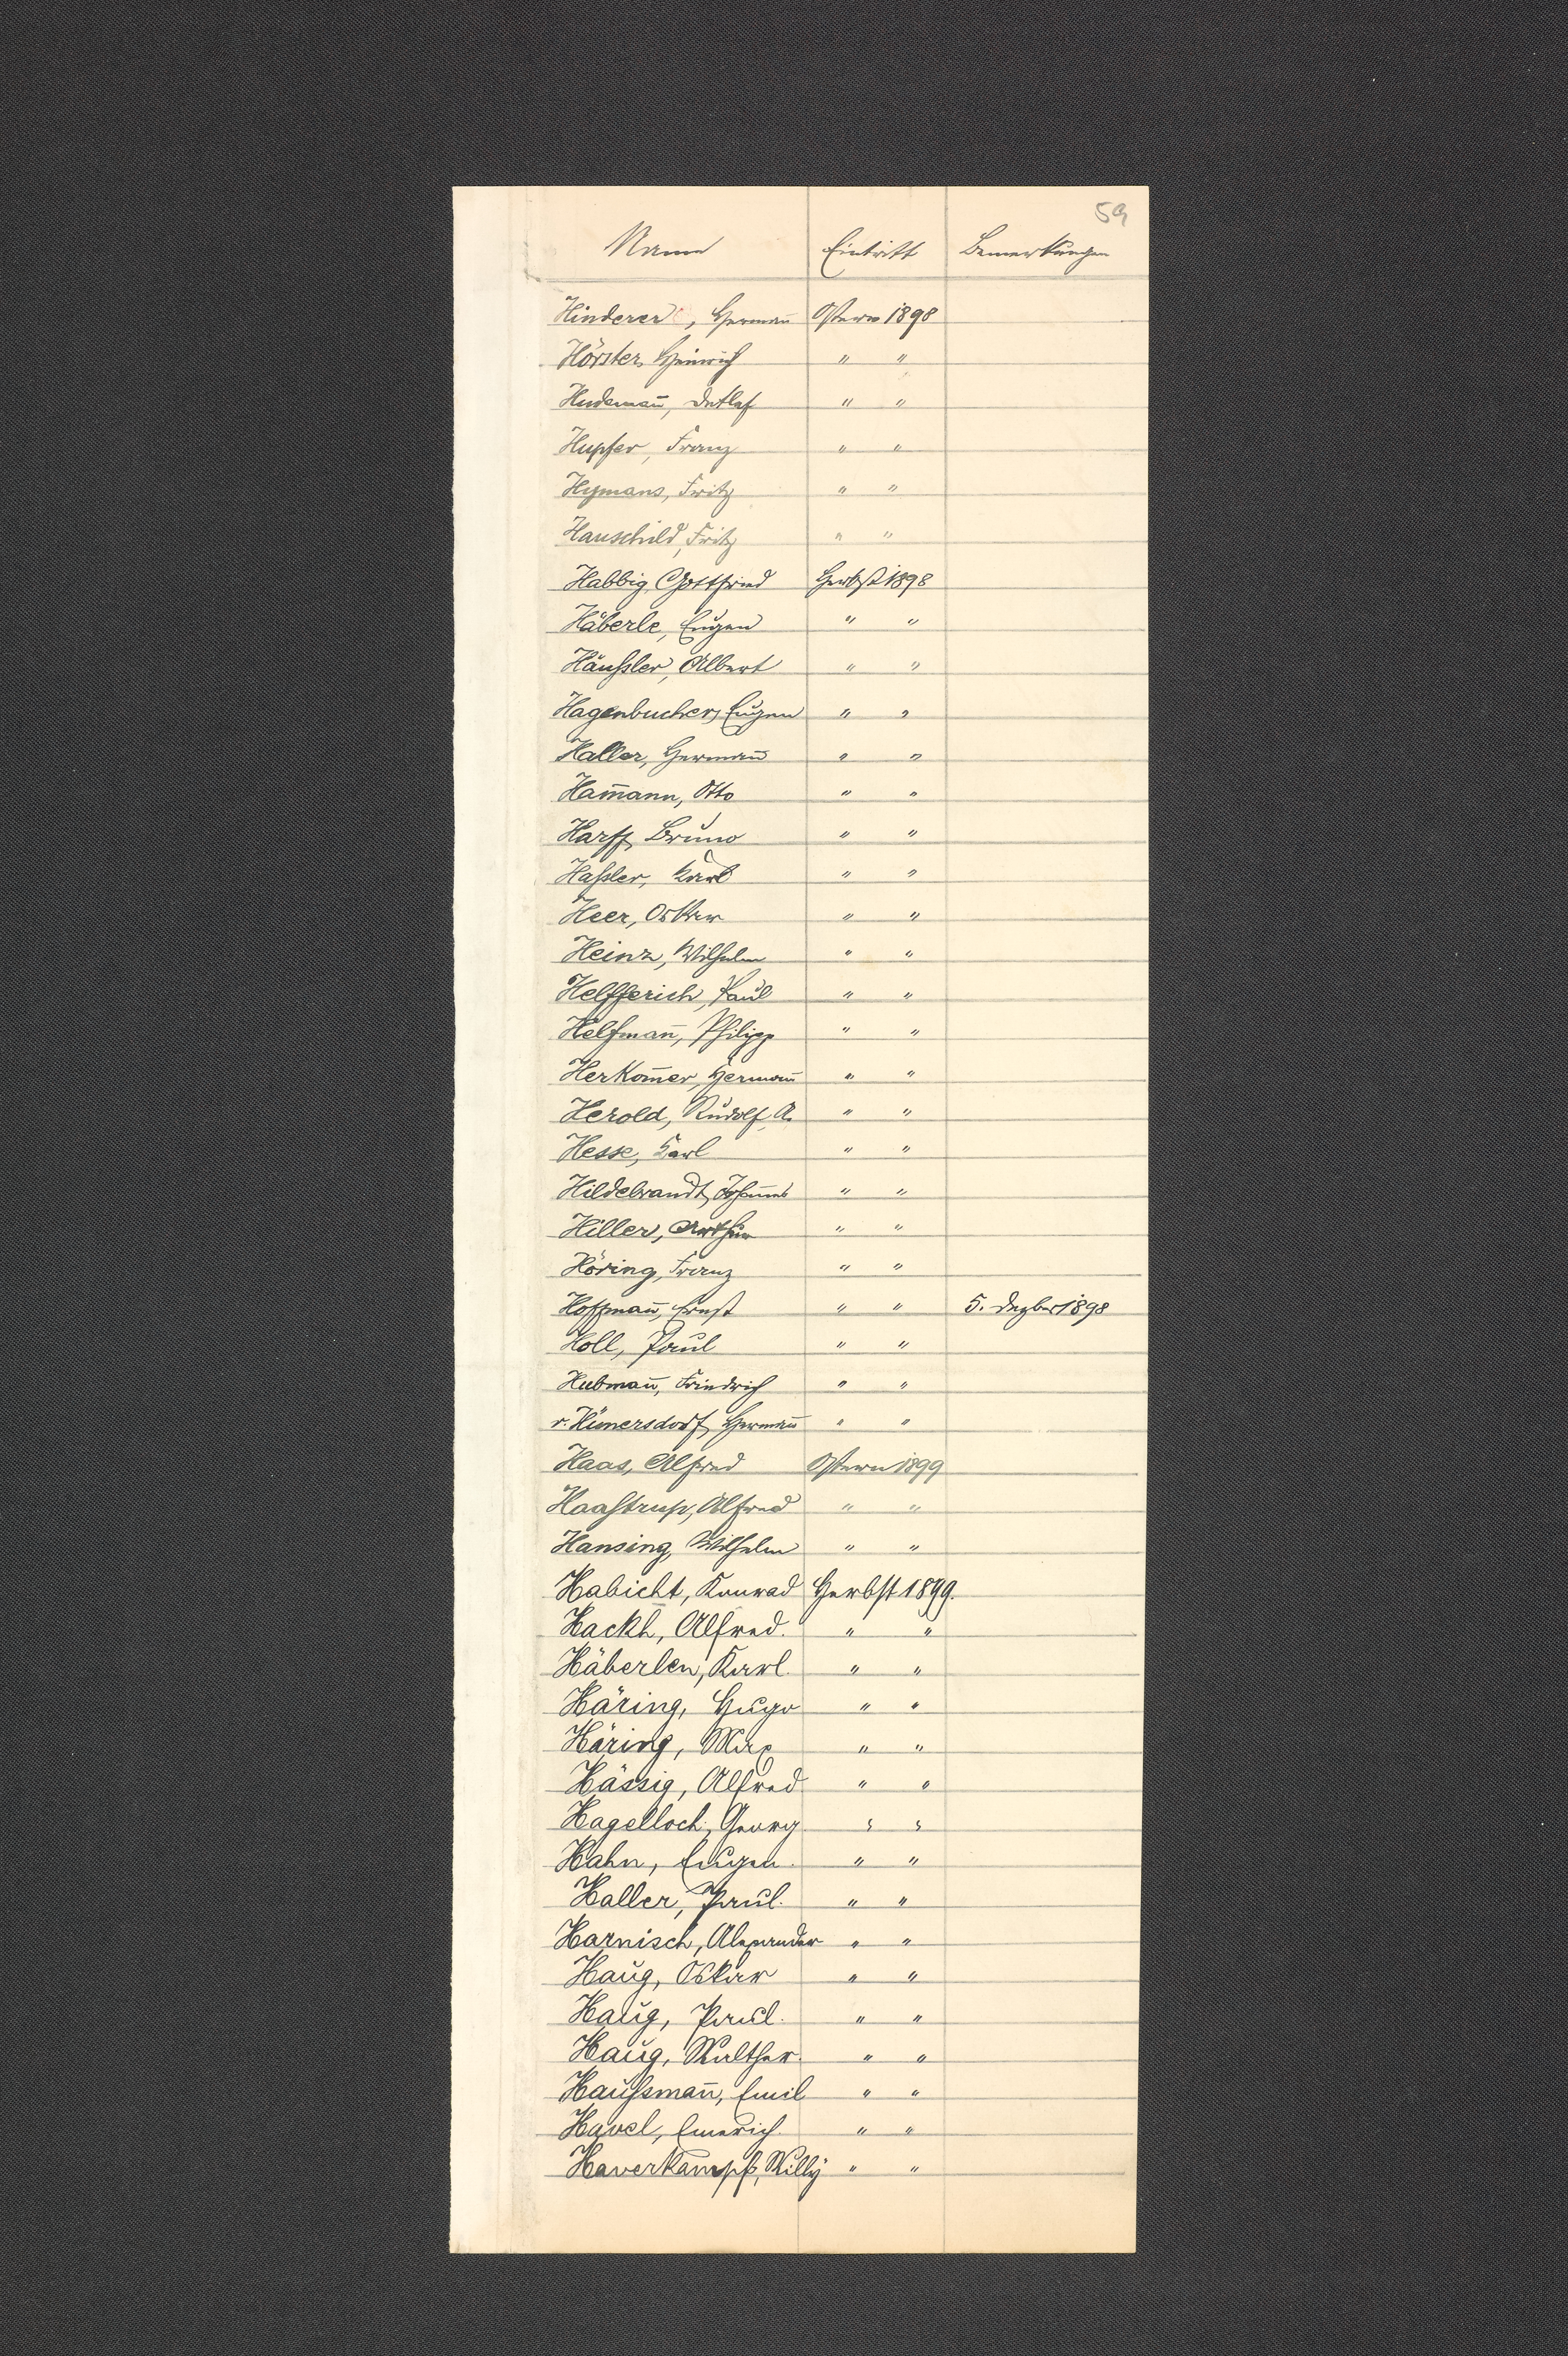 59
Name Eintritt Bemerkungen
Hinderer, Hermañ Ostern 1898
Hörster, Heinrich " "
Hudemañ, Detlef " "
Hupfer, Franz " "
Hymans, Fritz " "
Hauschild, Fritz " "
Habbig, Gottfried Herbst 1898
Häberle, Eugen " "
Häußler, Albert " "
Hagenbucher, Eugen " "
Haller, Hermañ " "
Ham̄ann, Otto " "
Harff, Bruno " "
Haßler, Karl " "
Heer, Oskar " "
Heinz, Wilhelm " "
Helfferich, Paul " "
Helfmañ, Philipp " "
Herkom̄er, Hermañ " "
Herold, Rudolf A. " "
Hesse, Karl " "
Hildebrandt, Johan̄es " "
Hiller, Arthur " "
Höring, Franz " "
Hoffmañ, Ernst " " 5. Dezber 1898
Holl, Paul " "
Hubmañ, Friedrich " "
v. Hünersdorf, Hermañ " "
Haas, Alfred Ostern 1899
Haaßtrup, Alfred " "
Hansing, Wilhelm " "
Habicht, Konrad Herbst 1899.
Hackh, Alfred. " "
Häberlen, Karl. " "
Häring, Hugo " "
Häring, Max " "
Hässig, Alfred " "
Hagelloch, Georg " "
Hahn, Eugen. " "
Haller, Paul. " "
Harnisch, Alexander " "
Haug, Oskar " "
Haug, Paul. " "
Haug, Walther. " "
Haußmañ, Emil " "
Havel, Emerich. " "
Haverkampf, Willy " "